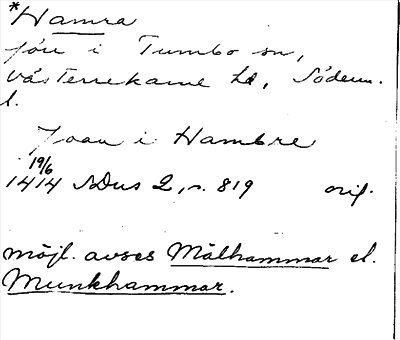 *Hamra
förr i Tumbo sn,
Västerrekarne hd, Söderm.
l.
Joan i Hambre
19/6
1414 SDns 2, s. 819 orig.
möjl. avses Målhammar el.
Munkhammar.